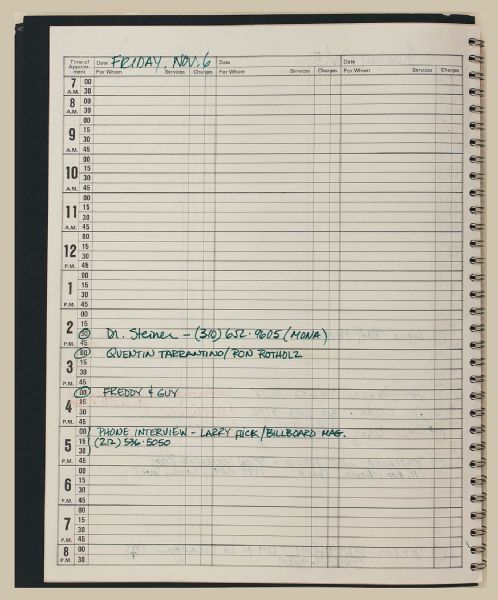 Time of Appoint-ment Date FRIDAY, NOV. 6 Date Date
For Whom Services Charges For Whom Services Charges For Whom Services Charges
7 00
A.M. 30
8 00
A.M. 30
00
9 15
30
A.M. 45
00
10 15
30
A.M. 45
00
11 15
30
A.M. 45
00
12 15
30
P.M. 45
00
1 15
30
P.M. 45
00
2 15
30 Dr. Steiner - (310) 652-9605 (MONA)
P.M. 45
00 QUENTIN TARRANTINO/RON ROTHOLZ
3 15
30
P.M. 45
00 FREDDY & GUY
4 15
30
P.M. 45
00 PHONE INTERVIEW - LARRY FLICK/BILLBOARD MAG.
5 15 (212) 536-5050
30
P.M. 45
00
6 15
30
P.M. 45
00
7 15
P.M. 30
8 00
P.M. 30